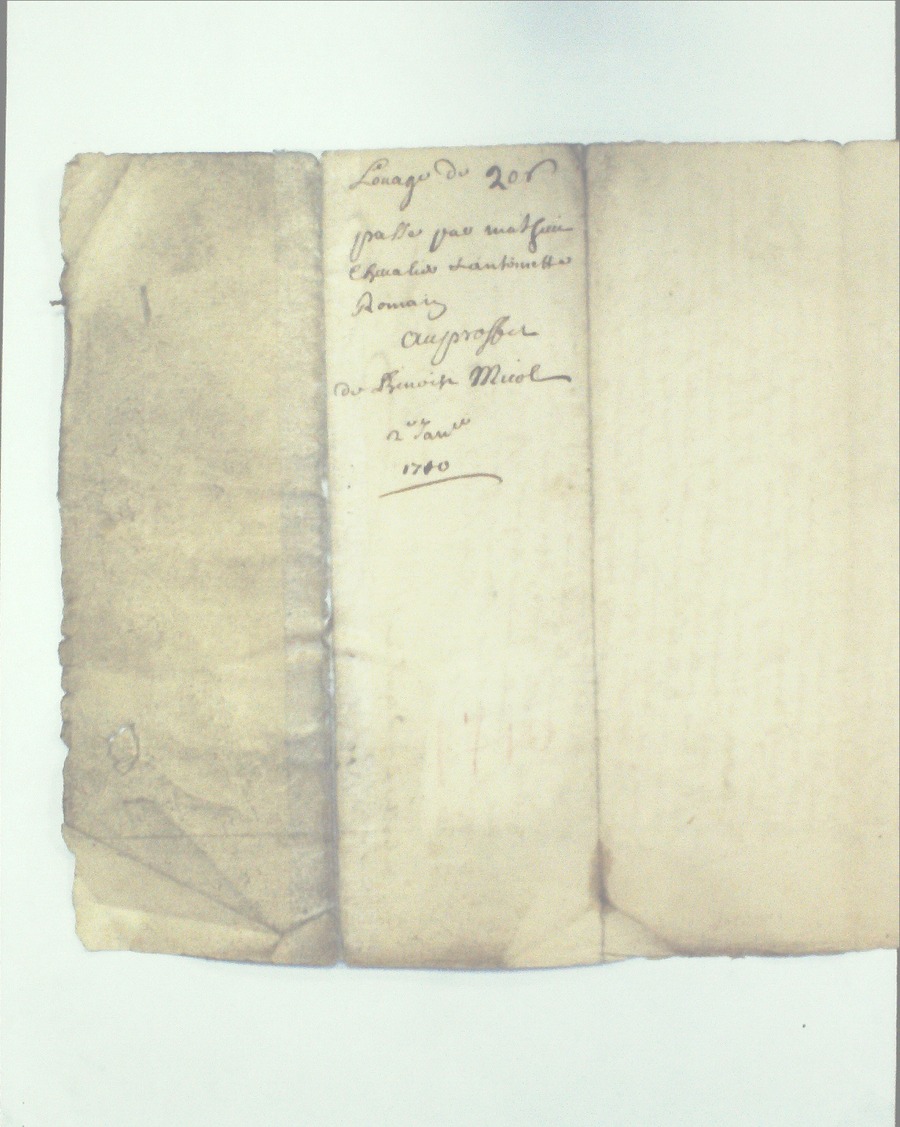 Louage de 20#
passé par mathieu
Chevalier & antoinette
Romain
au proffit
de Benoist Micol
2e Janer
1710
1710